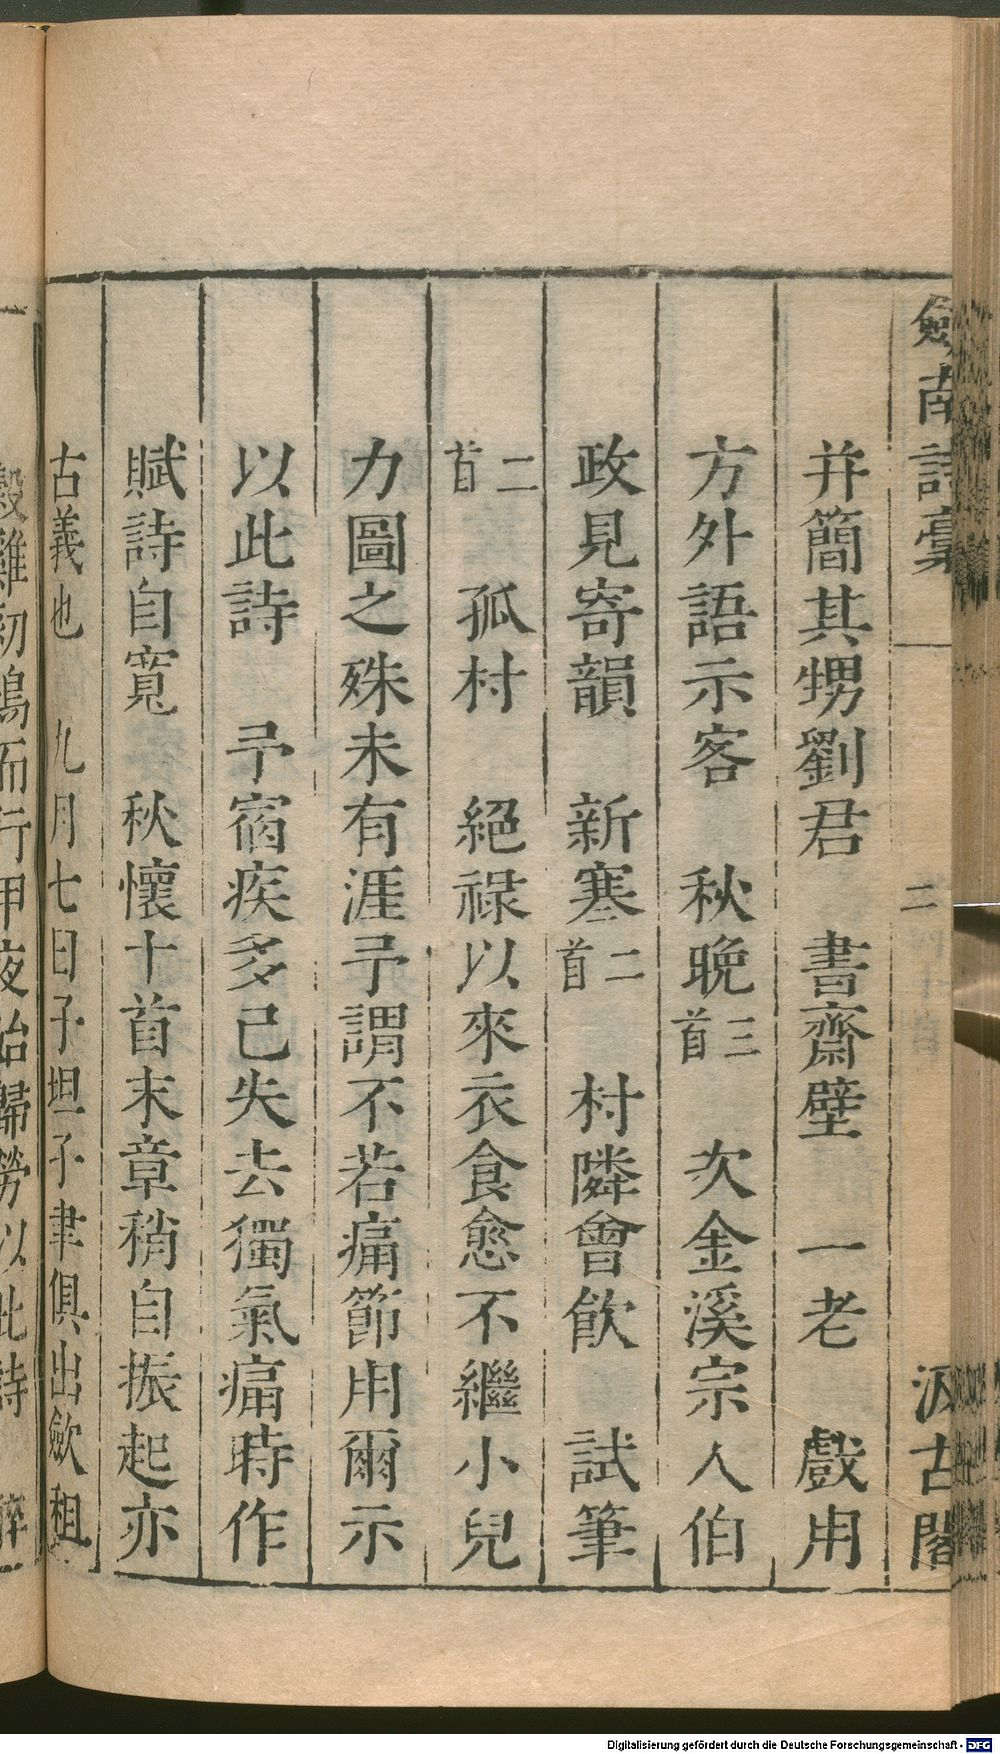 劍南詩稾 二 汲古閣
并簡其甥劉君 書齋壁 一老 戲用
方外語示客 秋晚三首 次金溪宗人伯
政見寄韻 新寒二首 村隣會飲 試筆
二首 孤村 絕祿以來衣食愈不繼小兒
力圖之殊未有涯予謂不若痛節用爾示
以此詩 予宿疾多已失去獨氣痛時作
賦詩自寬 秋懷十首末章稍自振起亦
古義也 九月七日子坦子聿俱出歛租
穀雞初鳴而行甲夜始歸勞以此詩
Digitalisierung gefördert durch die Deutsche Forschungsgemeinschaft - DFG